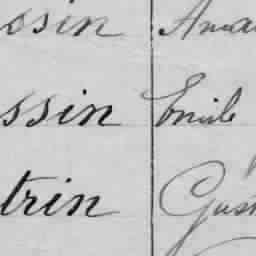 ssin Ama
ssin Emile
trin Gus